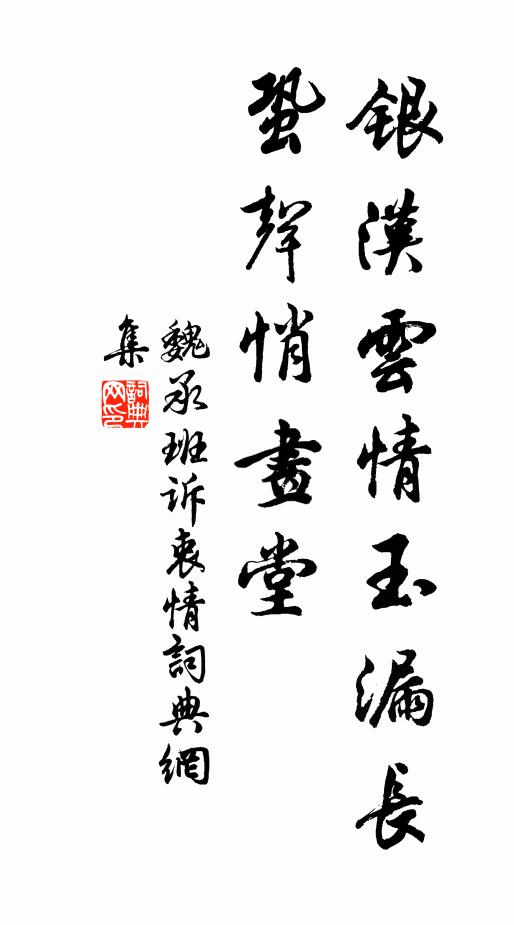 銀漢雲情玉漏長
蛩聲悄畫堂
魏承班訴衷情詞典網
集
詞典
网印